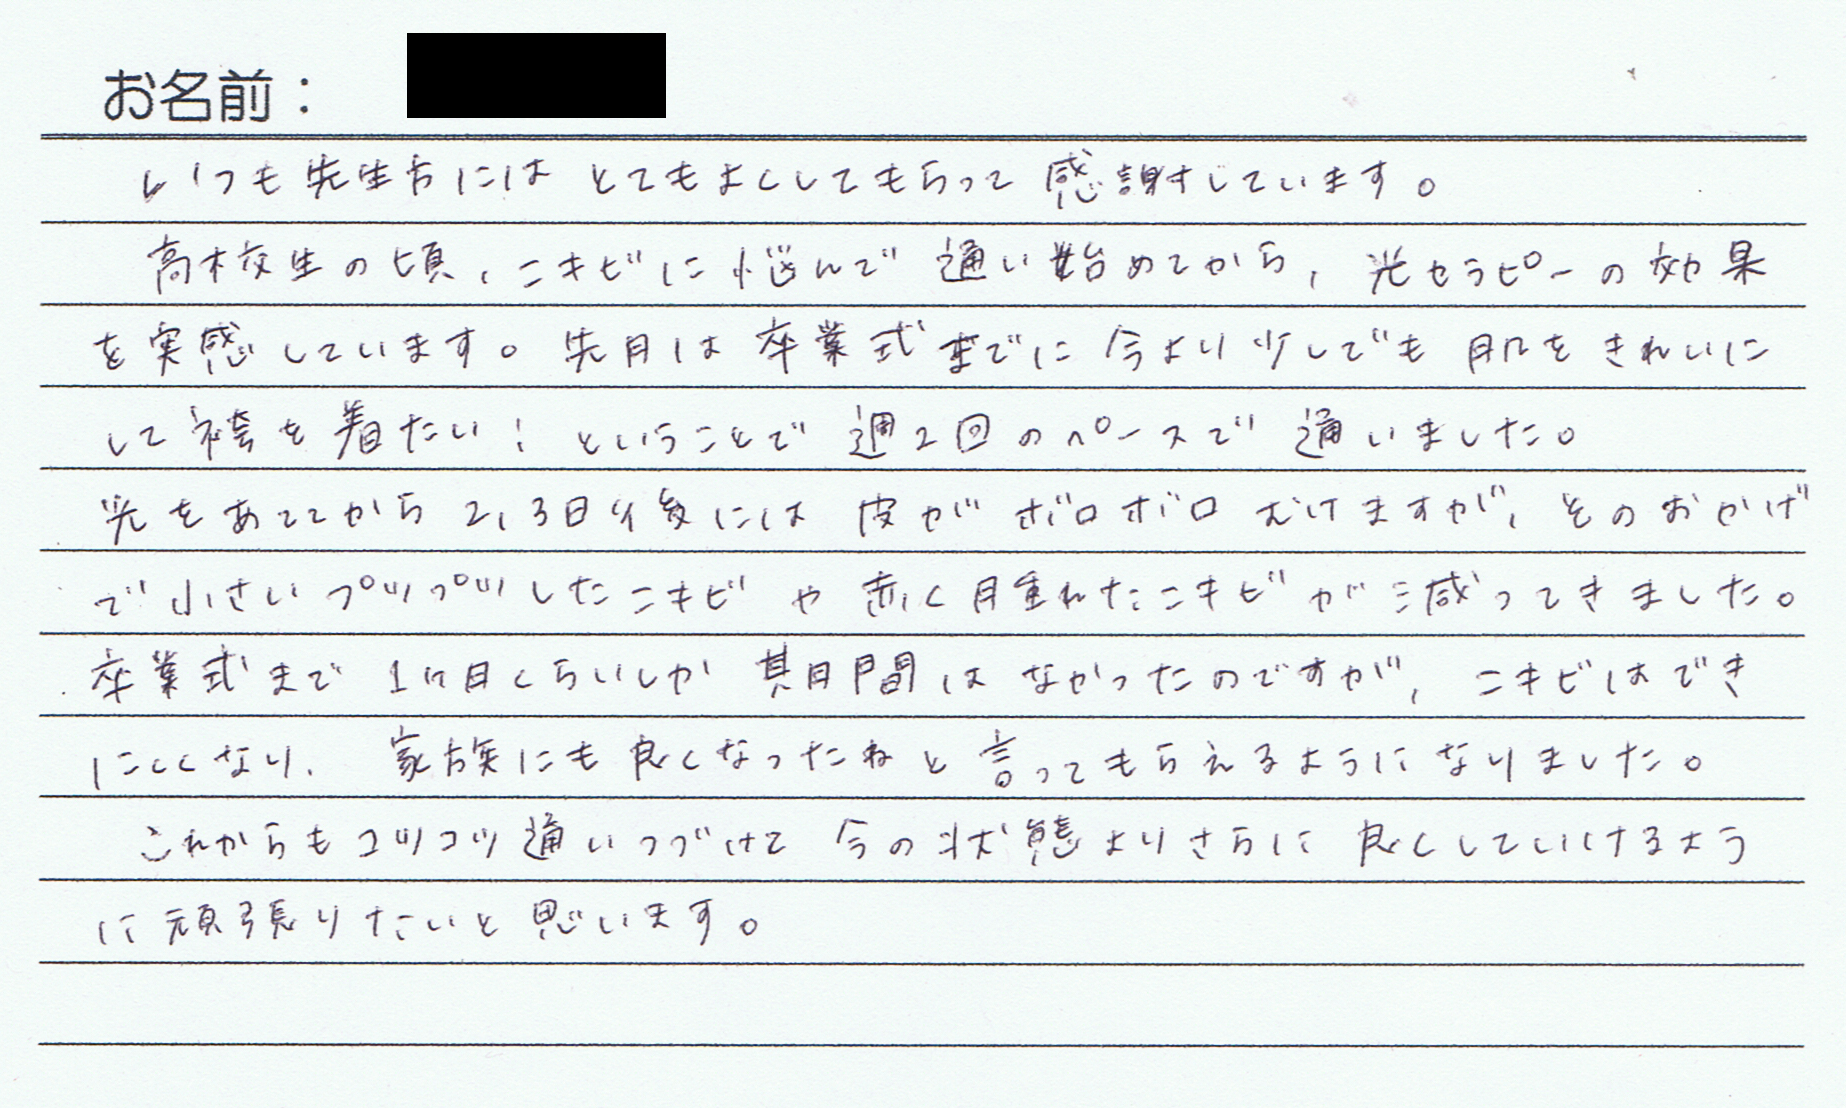 お名前：
いつも先生方にはとてもよくしてもらって感謝しています。
高校生の頃、ニキビに悩んで通い始めてから、光セラピーの効果
を実感しています。先月は卒業式までに今より少しでも肌をきれいに
して袴を着たい！ということで週2回のペースで通いました。
光をあててから2、3日後には皮がボロボロむけますが、そのおかげ
で小さいプツプツしたニキビや赤く腫れたニキビが減ってきました。
卒業式まで1ヶ月くらいしか期間はなかったのですが、ニキビはでき
にくくなり、家族にも良くなったねと言ってもらえるようになりました。
これからもコツコツ通いつづけて今の状態よりさらに良くしていけるよう
に頑張りたいと思います。